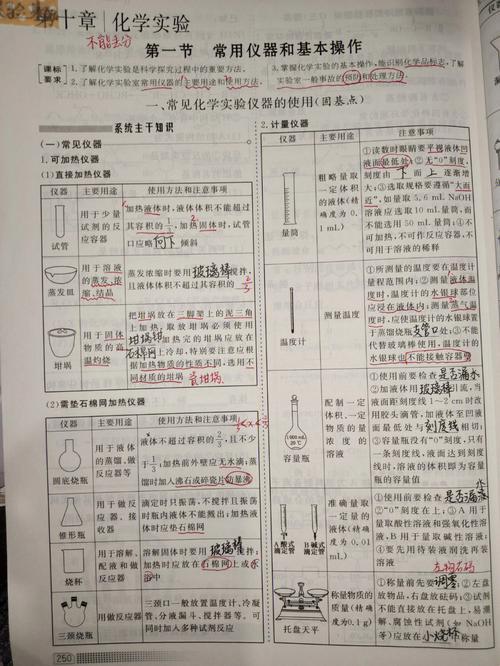 第十章 化学实验
不能丢分
第一节 常用仪器和基本操作
课标要求
1.了解化学实验是科学探究过程中的重要方法。
2.了解化学实验室常用仪器的主要用途和使用方法。
3.掌握化学实验的基本操作,能识别化学品标志,了解
实验室一般事故的预防和处理方法。
一、常见化学实验仪器的使用(固基点)
系统主干知识
(一)常见仪器
1.可加热仪器
(1)直接加热仪器
仪器 主要用途 使用方法和注意事项
试管
用于少量
试剂的反
应容器
加热液体时,液体体积不能超过
其容积的1/3,加热固体时,试管
口应略向下倾斜
蒸发皿
用于溶液
的蒸发、浓
缩、结晶
蒸发浓缩时要用玻璃棒搅拌,
且液体体积不超过其容积的2/3
坩埚
用于固体
物质的高
温灼烧
把坩埚放在三脚架上的泥三角
上加热,取放坩埚必须使用
坩埚钳,加热完的坩埚应放在
石棉网上冷却,特别要注意应根
据加热物质的性质不同,选用不
同材质的坩埚
瓷坩埚
(2)需垫石棉网加热仪器
仪器 主要用途 使用方法和注意事项
圆底烧瓶
用作液体
的蒸馏、做
反应器等
液体不超过容积的2/3,且不少
于1/3;加热前外壁应无水滴;蒸
馏时加入沸石或碎瓷片防暴沸
锥形瓶
用作反应
器、接收
器
滴定时只振荡、不搅拌且振荡
时瓶内液体不能溅出;加热液
体时应垫石棉网
烧杯
用于溶解、
配液和做
反应器
溶解固体时要用玻璃棒搅拌;
加热时应放在石棉网上或水
浴中
三颈烧瓶
三颈口一般放置温度计、冷凝
管、分液漏斗、搅拌器等。可
同时加入多种试剂反应
250
2.计量仪器
仪器 主要用途 注意事项
量筒
粗略量取
一定体积
的液体(精
确度为0.
1 mL)
①读数时眼睛要平视液体凹
液面最低处;②无“0”刻度,
刻度由下而上逐渐增
大;③选取规格要遵循“大而
近”,如量取5.6 mL NaOH
溶液应选取10 mL量筒,而
不能选用50 mL量筒;④不
可加热,不可作反应容器,不
可用于溶液的稀释
温度计
测量温度
①所测量的温度要在温度计
量程范围内;②测量液体温
度时,温度计的水银球部位
应浸在液体内;测量蒸气温
度时,应使温度计的水银球置
于蒸馏烧瓶支管口处;③不能
代替玻璃棒使用,温度计的
水银球也不能接触容器壁
容量瓶
1 000 mL
20℃
配制一定
体积、一定
物质的量
浓度的溶
液
①使用前要检查是否漏水
②加液体用玻璃棒引流,当
液面距刻度线1~2 cm时改
用胶头滴管,加液体至凹液
面最低处与刻度线相切;
③容量瓶没有“0”刻度,只有
一条刻度线,液面达到刻度
线时,溶液的体积即为容量
瓶的容量值
A酸式滴定管
B碱式滴定管
准确量取
一定量的
液体(精确
度为0.
01 mL)
①使用前要检查是否漏水
②“0”刻度在上;③A用于
量取酸性溶液和强氧化性溶
液,B用于量取碱性溶液;
④要先用待装液润洗再装
溶液
左物右码
托盘天平
称量物质的
质量(精确
度为0.1 g)
①称量前先要调零;②左盘
放物品,右盘放砝码;③试剂
不能直接放在托盘上,易潮
解、腐蚀性试剂(如NaOH
等)应放在小烧杯中称量